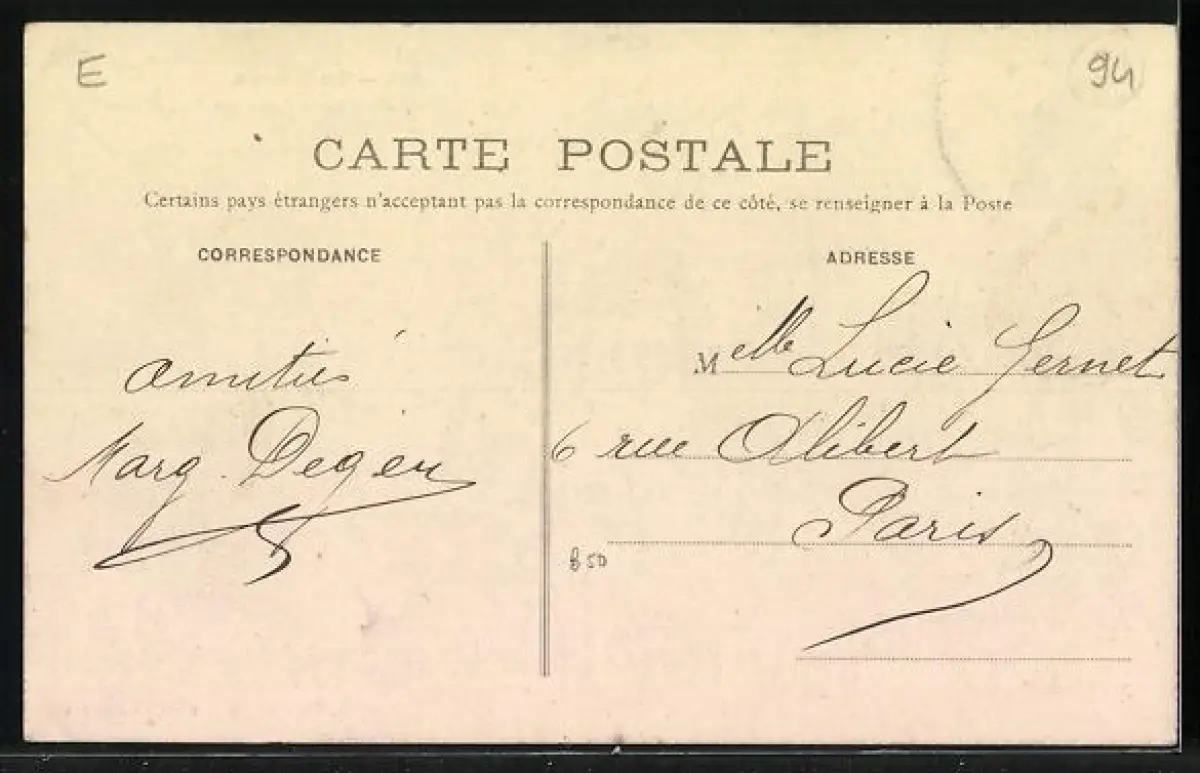 E
94
CARTE POSTALE
Certains pays étrangers n'acceptant pas la correspondance de ce côté, se renseigner à la Poste
CORRESPONDANCE
amitiés
Marg. Degen
ADRESSE
Melle Lucie Gernet
6 rue Alibert
Paris
B 50